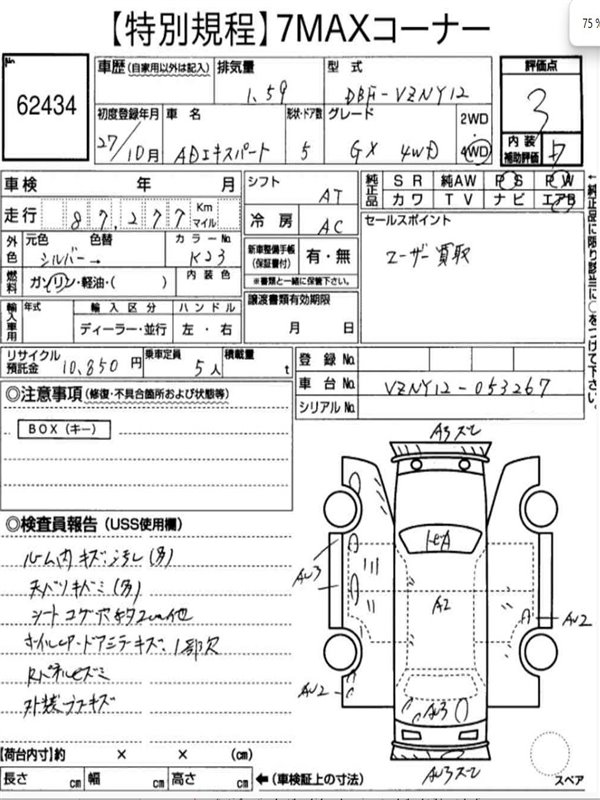 75 %
【特別規程】7MAXコーナー
No
62434
車歴 (自家用以外は記入)
排気量
1.59
型式
DBF-VZNY12
評価点
3
初度登録年月
27/10月
車名
ADエキスパート
形状・ドア数
5
グレード
GX 4WD
2WD
・
4WD
内装
補助評価
車検 年 月
シフト
AT
純正品
SR 純AW PS PW
カワ TV ナビ エアB
走行 87,277 Km マイル
冷房
AC
セールスポイント
ユーザー買取
外色
元色 色替
シルバー→
カラーNo.
K23
新車整備手帳
(保証書付)
有・無
※書類と一緒に保管下さい。
燃料
ガソリン・軽油・( )
内装色
輸入車用
年式
輸入区分
ディーラー・並行
ハンドル
左・右
譲渡書類有効期限
月 日
←純正品に限り該当に○をつけて下さい。
リサイクル預託金 10,850円
乗車定員 5人
積載量 t
登録No.
車台No. VZNY12-053267
シリアルNo.
◎注意事項 (修復・不具合箇所および状態等)
BOX(キー)
◎検査員報告 (USS使用欄)
ルーム内キズ汚レ(多)
シートコゲ穴 約2cm他
外装
A3
AU3
A2
AU2
AU2
AU3
AU3
【荷台内寸】約 × × (cm)
長さ cm 幅 cm 高さ cm ←(車検証上の寸法)
スペア